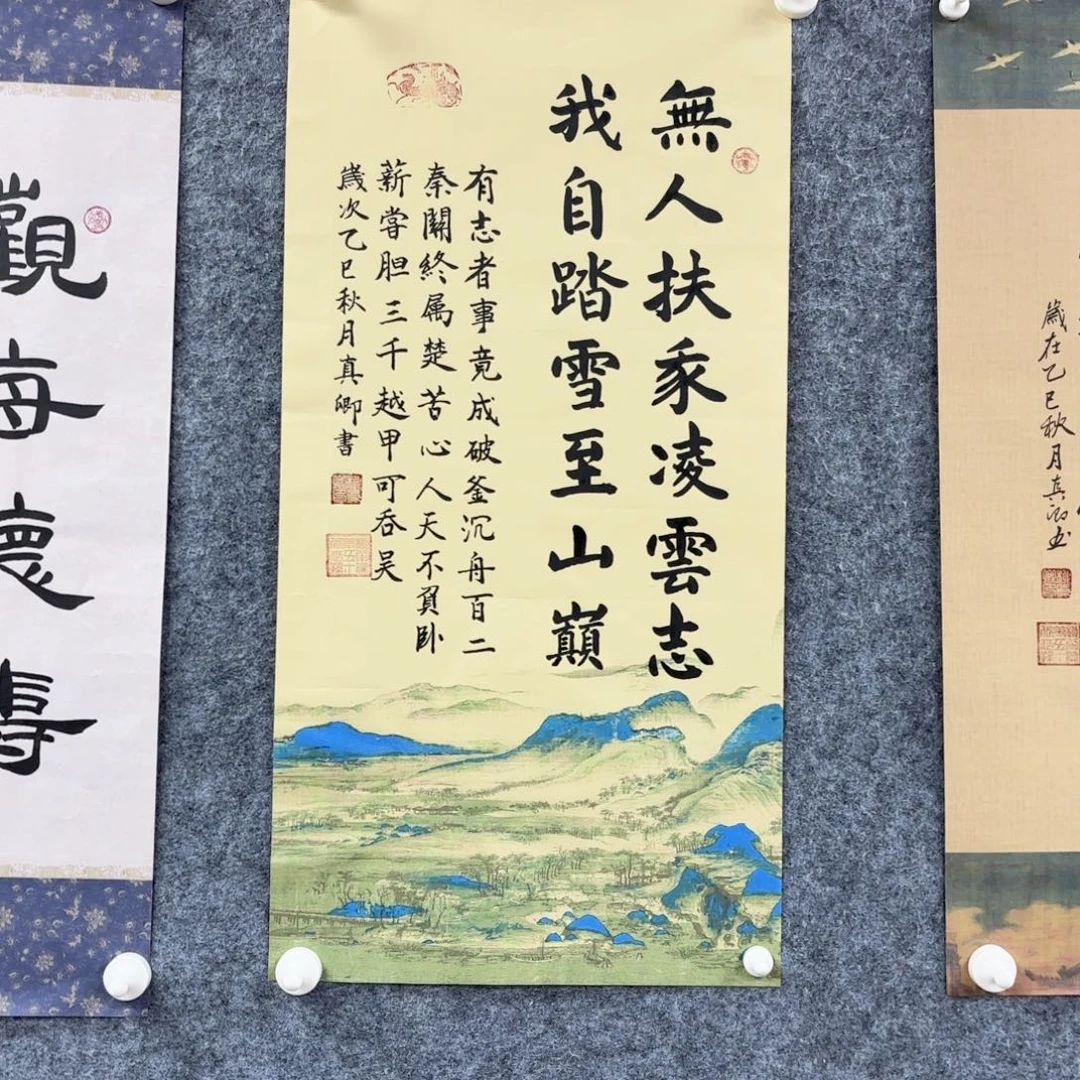 歲在乙巳秋月真卿书
無人扶我凌雲志
我自踏雪至山巔
有志者事竟成破釜沉舟百二
秦關終属楚苦心人天不負卧
薪嘗胆三千越甲可吞吴
歲次乙巳秋月真卿書
觀海濤